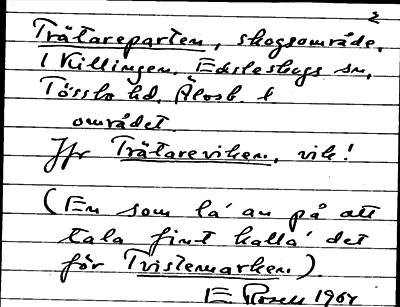 2
Trätareparten, skogsområde,
i Killingen, Edsleskogs sn,
Tössbo hd, Älvsb. l
området.
Jfr Trätareviken, vik!
(En som la' an på att
tala fint kalla' det
för Tvistemarken).
E Rosell 1964